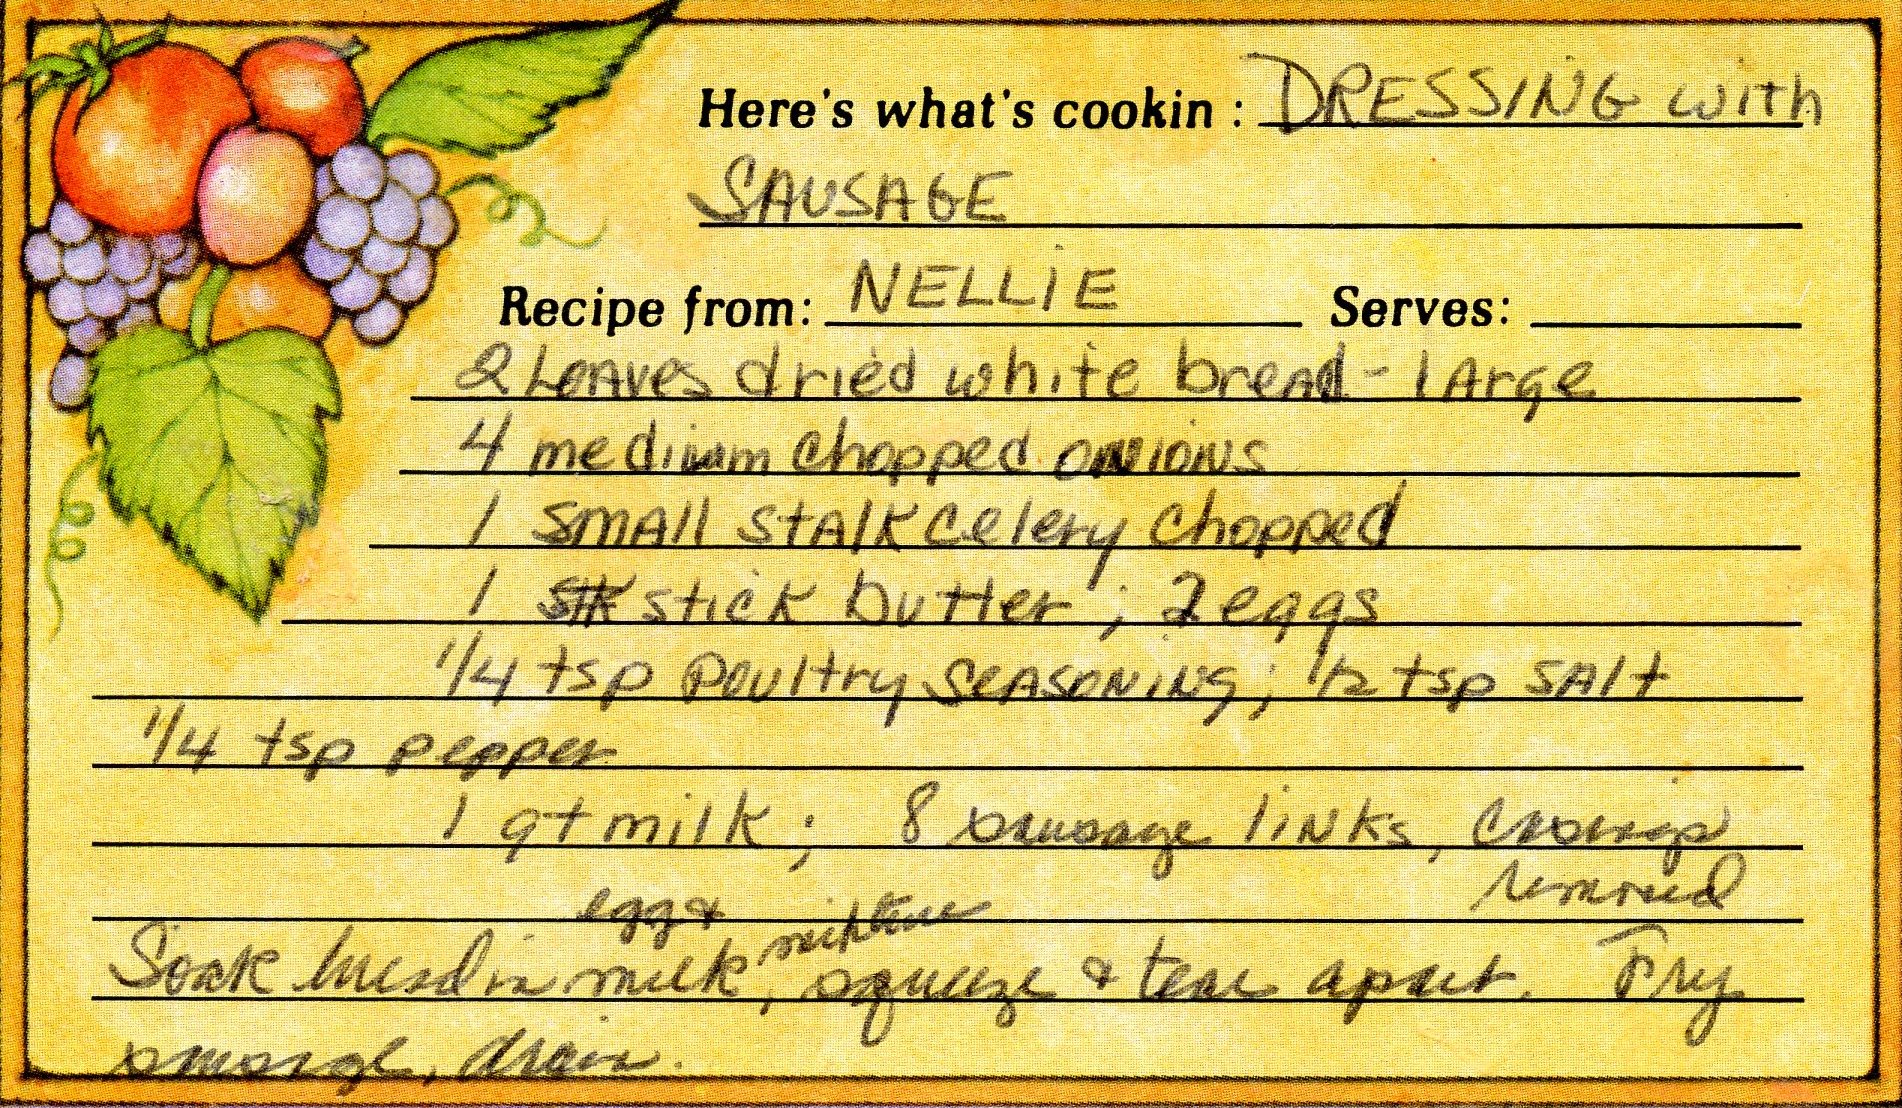 Here's what's cookin : DRESSING with
SAUSAGE
Recipe from: NELLIE Serves:
2 Loaves dried white bread - large
4 medium chopped onions
1 small stalk celery chopped
1 stick butter ; 2 eggs
1/4 tsp poultry seasoning ; 1/2 tsp salt
1/4 tsp pepper
1 qt milk ; 8 sausage links, casings
removed
egg & mixture
Soak bread in milk, squeeze & tear apart. Fry
sausage, drain.